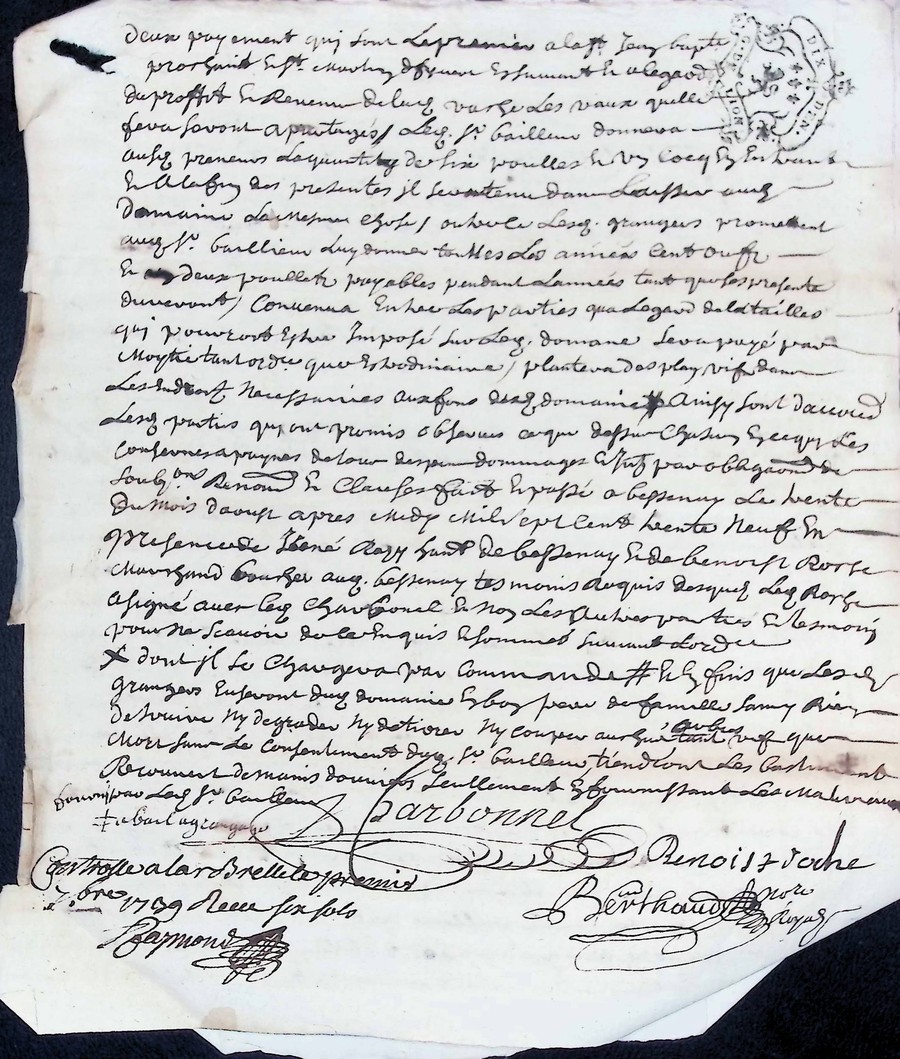 deux payement qui sont le premier a la st Jean bapte
prochaine Et st Martin dhivert Ensuivant Et alegard
du proffit Et Revenu de lad vache Les vaux quelle
fera seront apartagés / Led. sr bailleur donnera
ausd preneurs La quantité de six poulles Et Un Cocq En Entrant
Et Alafin des presentes jl seront tenu dans Laisser aud
Domaine La Mesme Chose / outre ce Lesd. grangers promettent
aud sr baillieur Luy donner touttes Les années Cent œuffs
Et deux poullets payables pendant Lannées tant que Les presente
dureront / Convenu Entre Les parties qua Legard de la tailles
qui pourront Estre Imposé sur Led. domaine sera payé par
Moytié tant ordre que Extrodinaire / plantera des play vifs dans
Les Endroit Necessaires aux fons dud domaine # Ainsy sont daccord
Lesd parties qui ont promis observer ce que dessus Chascun En ce qui Les
Conserne a paynes de tous despens dommages Et jnts par obligaon de
soub.ons Renon Et Clauses fait Et passé a bessenay Le trente
du Mois daoust apres Midy Mil sept Cent trente Neuf En
presence de René Razy hant de bessenay Et de benoist Roche
Marchand boucher aud. bessenay tesmoins Requis desquel Led Roche
a signé avec led Charbonel Et Non Les Autres parties Et tesmoin
pour ne scavoir de ce Enquis Et sommés suivant Lordre
X dont jl se Chargera par Commande # Et Enfins que Lesd
grangers Euseront dud domaine En bon pere de famille sans Rien
detruire Ny degrader Ny detiorer Ny couper aucun arbres tant vif que
Mort sans Le Consentement dud. sr bailleur tiendront Les bastiment
Recouvert de mains douvres seullement En fournissant Les Materiaux
fourni par Led sr bailleur
‡ ce bail a grangage
Charbonnel
Benoist Roche
Controllé a lar Brelle le premier
7.bre 1739 Receu six sols
Raymond
Berthaud nore Royal
DIX DEN